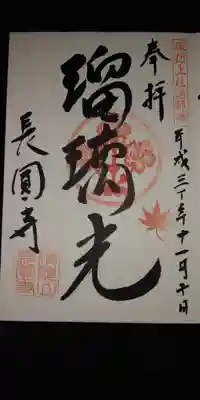 平成三十年十一月十日
奉拝
瑠璃光
長圓寺